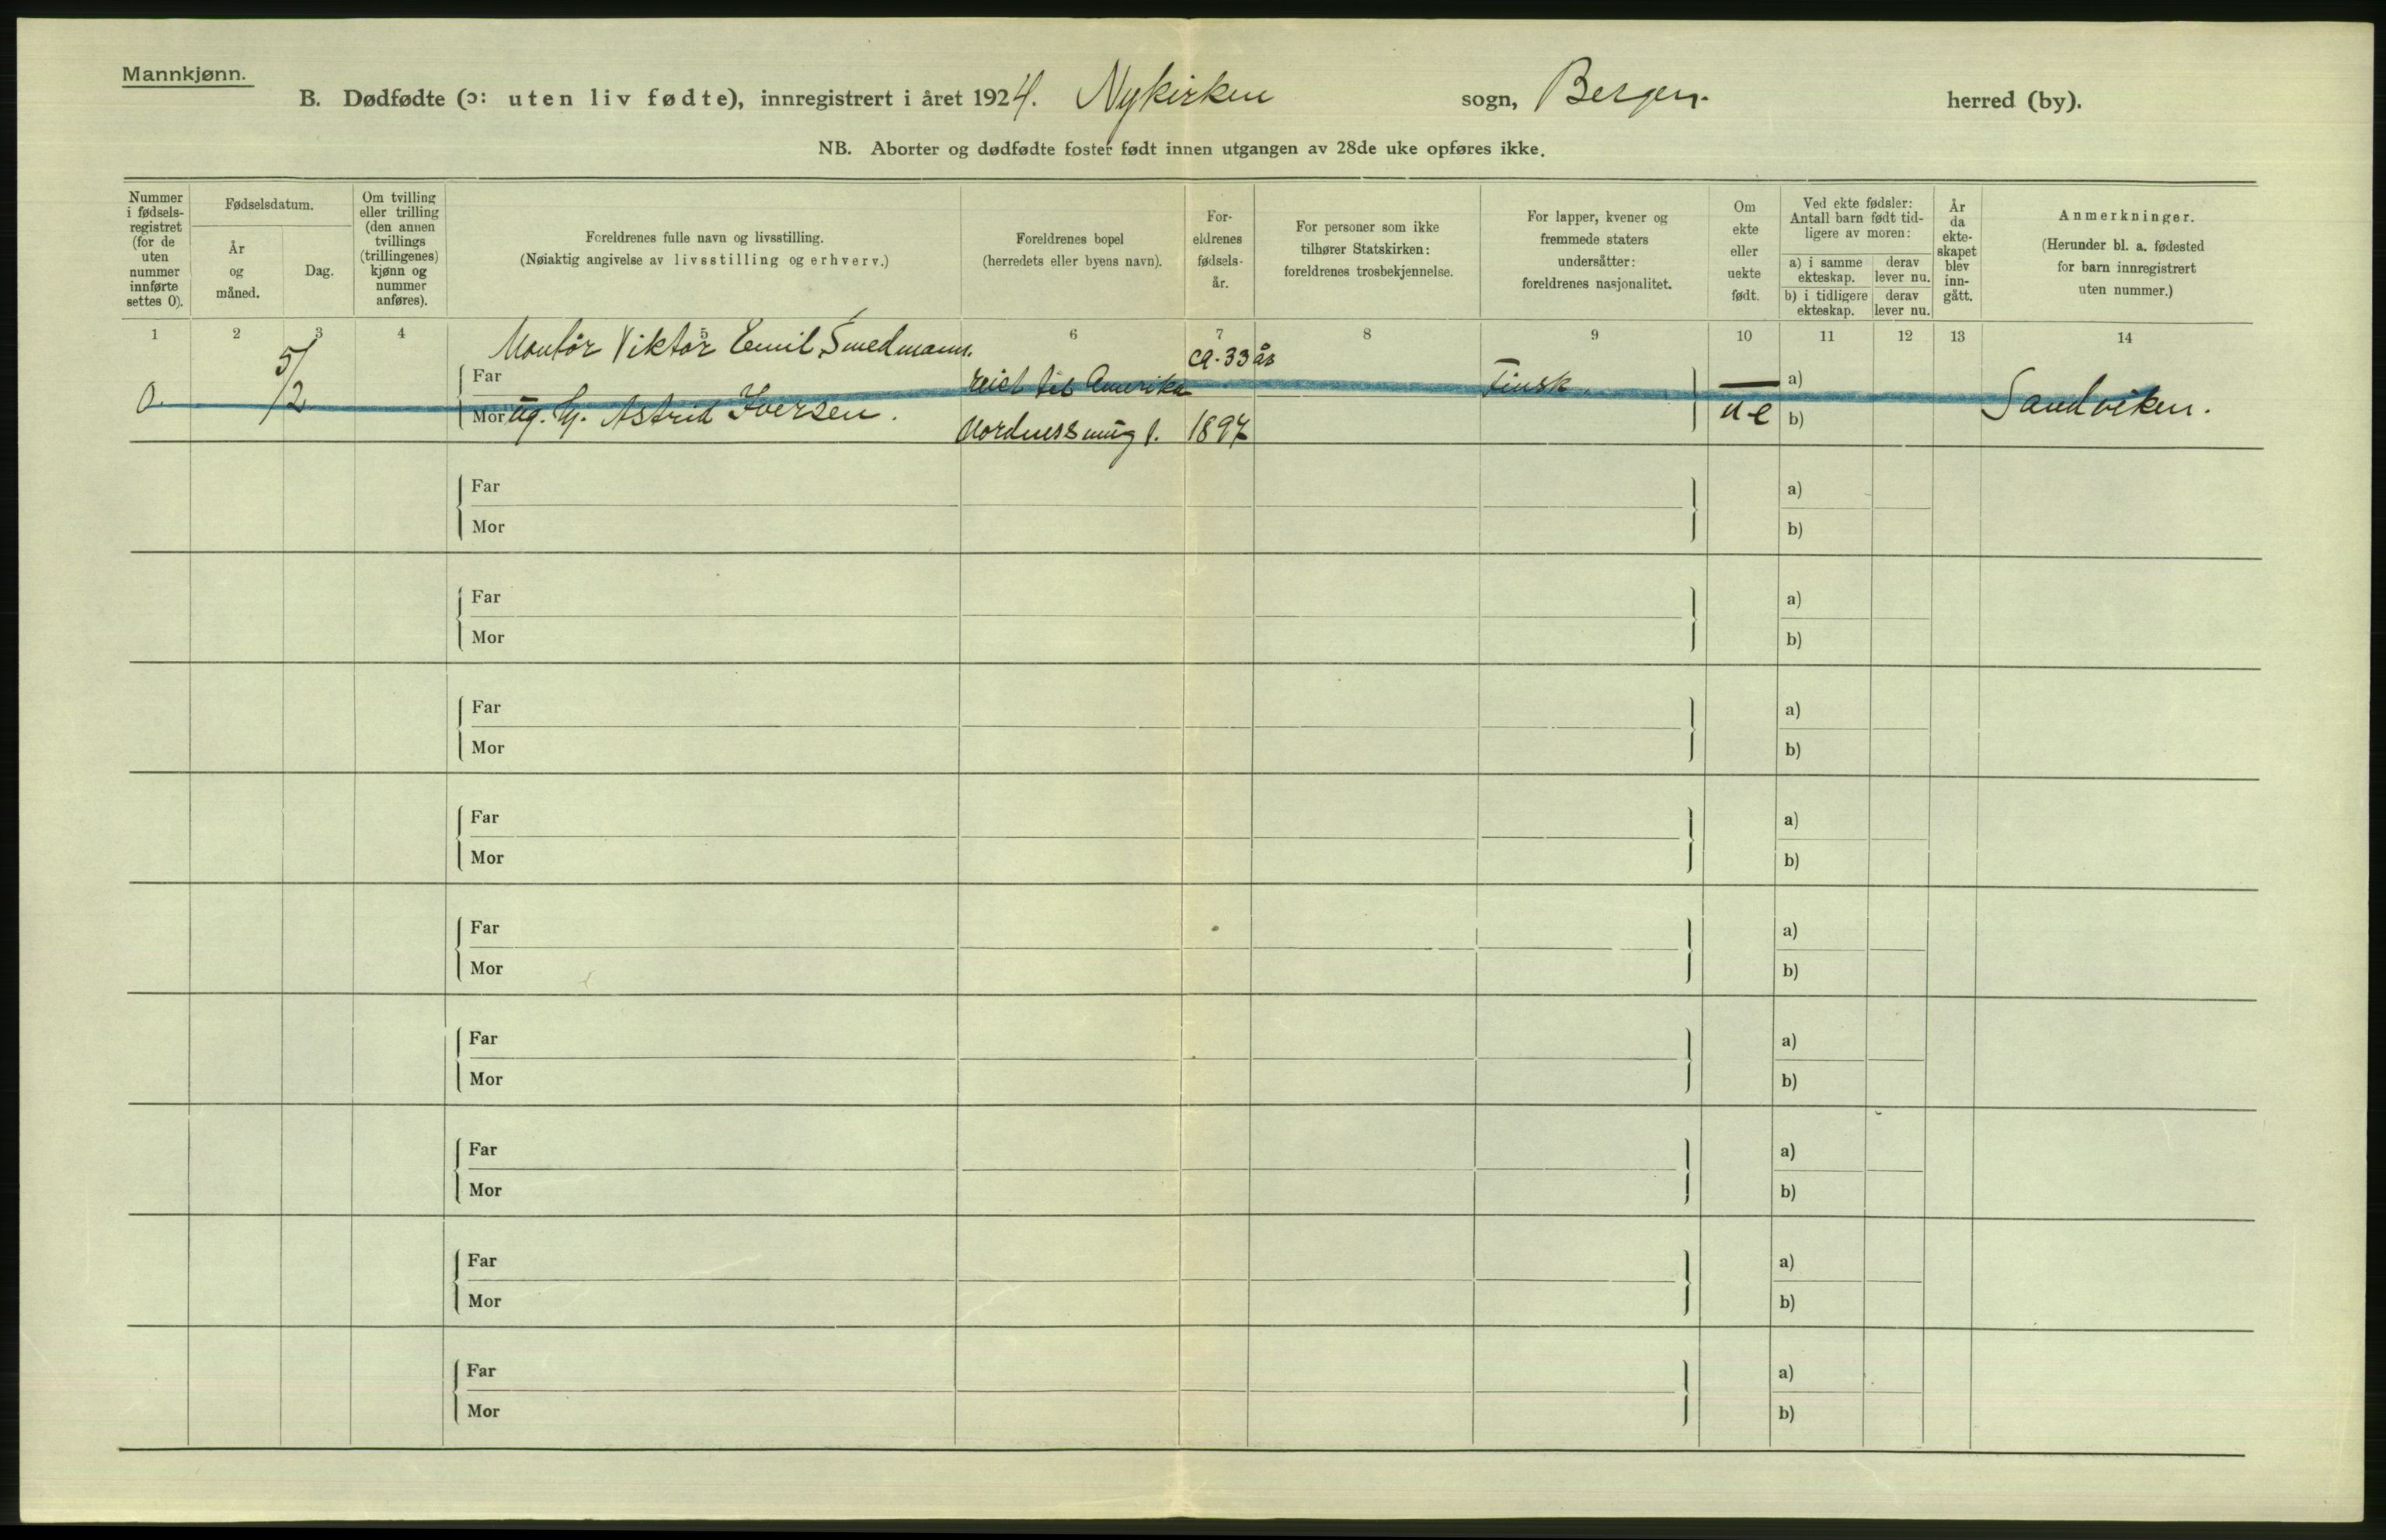 Mannkjønn.
B. Dødfødte (ɔ: uten liv fødte), innregistrert i året 1924. Nykirken sogn, Bergen. herred (by).
NB. Aborter og dødfødte foster født innen utgangen av 28de uke opføres ikke.
Nummer i fødsels-registret (for de uten nummer innførte settes 0).
Fødselsdatum.
År og måned.
Dag.
Om tvilling eller trilling (den annen tvillings (trillingenes) kjønn og nummer anføres).
Foreldrenes fulle navn og livsstilling.
(Nøiaktig angivelse av livsstilling og erhverv.)
Foreldrenes bopel
(herredets eller byens navn).
For-eldrenes fødsels-år.
For personer som ikke tilhører Statskirken: foreldrenes trosbekjennelse.
For lapper, kvener og fremmede staters undersåtter: foreldrenes nasjonalitet.
Om ekte eller uekte født.
Ved ekte fødsler: Antall barn født tid-ligere av moren:
a) i samme ekteskap.
derav lever nu.
b) i tidligere ekteskap.
derav lever nu.
År da ekte-skapet blev inn-gått.
Anmerkninger.
(Herunder bl. a. fødested for barn innregistrert uten nummer.)
1 2 3 4 5 6 7 8 9 10 11 12 13 14
Montør Viktor Emil Smedmann. ca. 33 år
Far reist til Amerika Finsk. — a)
0. 5/2 Mor ug. Hj. Astrid Iversen. u-e b) Sandviken.
Nordnessmug 1. 1897
Far a)
Mor b)
Far a)
Mor b)
Far a)
Mor b)
Far a)
Mor b)
Far a)
Mor b)
Far a)
Mor b)
Far a)
Mor b)
Far a)
Mor b)
Far a)
Mor b)